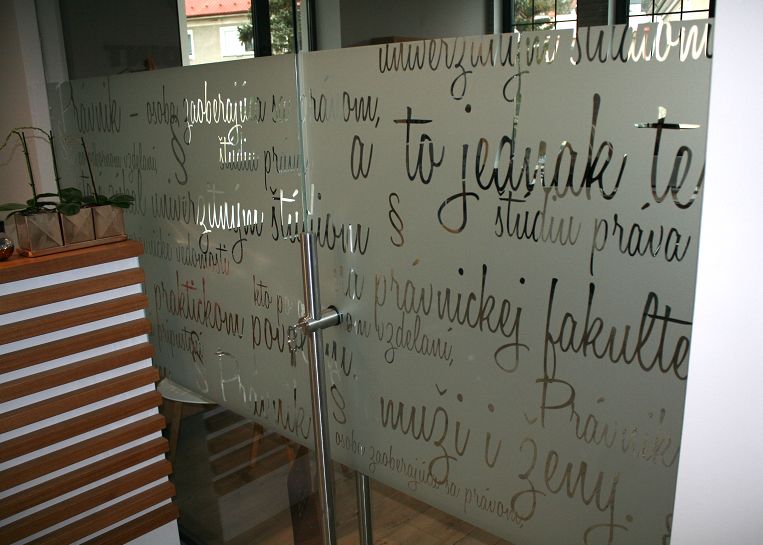 univerzitným štúdiom
Právnik - osoba zaoberajúca sa právom,
vzdelaní, § štúdiu práva
a to jednak te
univerzitným štúdiom §
štúdiu práva
praktickom
kto
na právnickej fakulte
vzdelaní,
§ Právnik §
muži i ženy.
Právnik
osoba zaoberajúca sa právom,